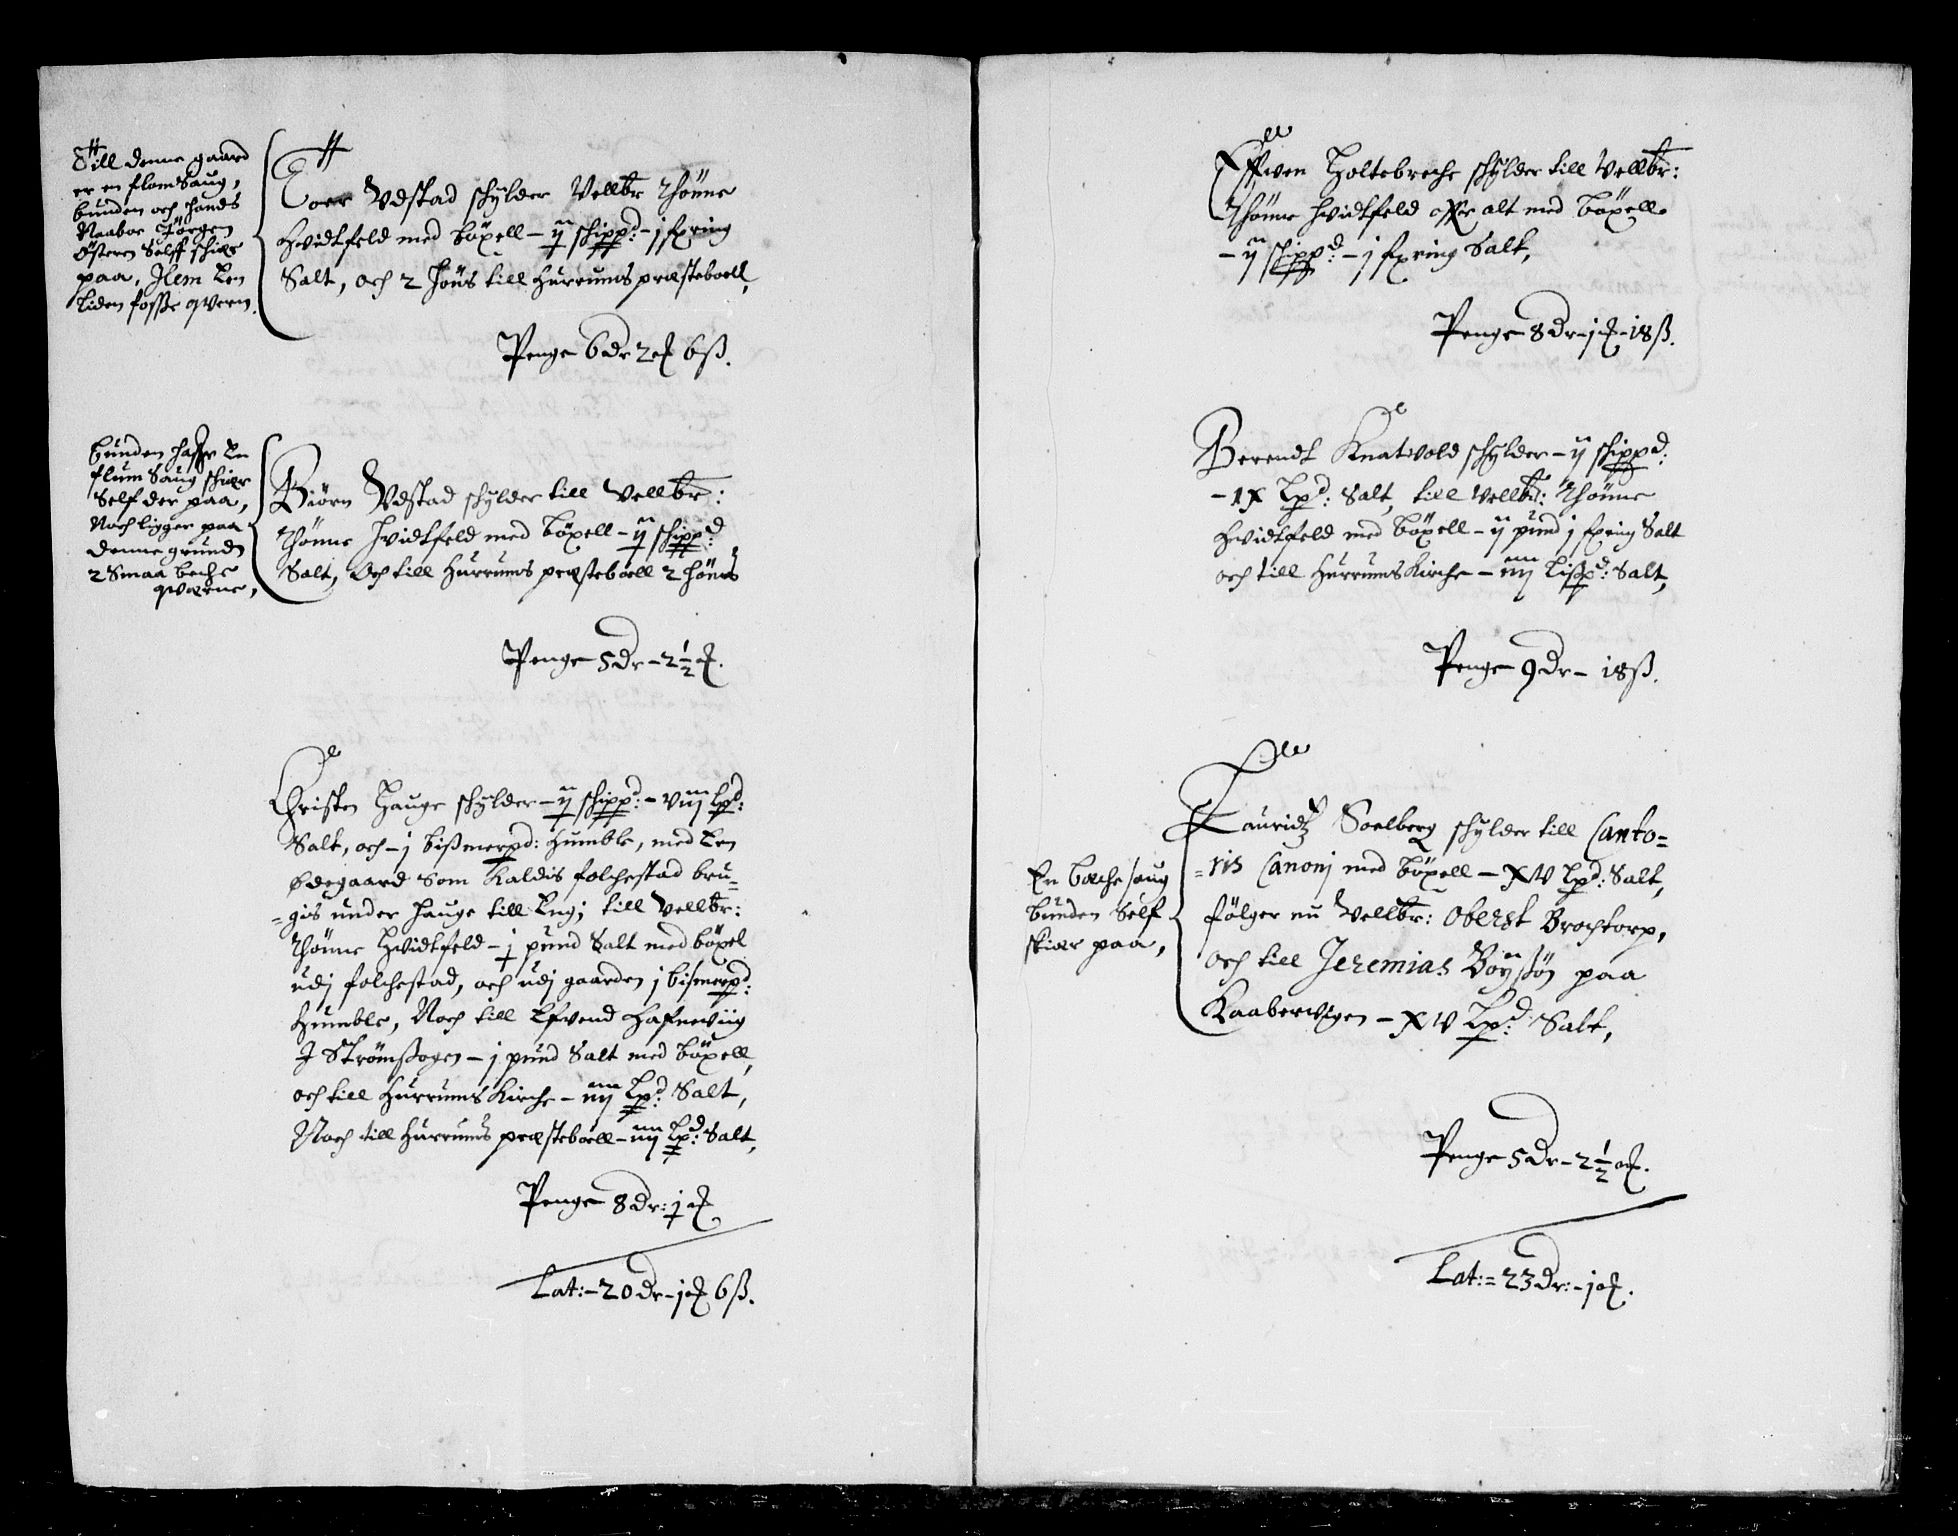 Till denne gaard
er en flom Saug,
bunden och hands
Naaboe Jörgen
Österen Selff schiær
paa, Jtem Een
Liden fosse qvern.
Toer Vdstad schylder Vellbr Thönne
Hvidtfeld med böxell – ij schippd: – j fxring
Salt, och 2 Höns till Hurrums præsteboell,
Penge 6 Dr 2 ¶ 6 ß.
Bunden haffer En
flum Saug schiær
Self der paa,
Noch ligger paa
denne grundt
2 Smaa beche
qværne,
Biörn Vdstad schylder till Vellbr:
Thönne Hvidtfeld med böxell – ij schippd:
Salt, Och till Hurrums præsteboell 2 höns
Penge 5 Dr – 2 1/2 ¶.
Christen Hauge schylder – ij schippd: – viij Lpd:
Salt, och – j bißmerpd: Humble, med Een
Ødegaard Som Kaldis folchestad bru=
=gis under Hauge till Engj till Vellbr:
Thönne Hvidtfeld – j pund Salt med böxel
udj folchestad, och udj gaarden j bißmerpd:
Humble, Noch till Efvend Hafnewiig
J Strömßogen – j pund Salt med böxell,
och till Hurrums Kirche – iiij Lpd: Salt,
Noch till Hurrums præsteboell – iiij Lpd: Salt,
Penge 8 Dr: j ¶
Lat: – 20 Dr – j ¶ 6 ß.
Effwen Holtebreche schylder till Vellbr:
Thönne Hvidtfeld offr alt med böxell
– ij schippd: – j fxring Salt,
Penge 8 Dr – j ¶ – 18 ß.
Berendt Knatvold schylder – ij schippd:
– ix Lpd: Salt, till Vellbr: Thönne
Hvidtfeld med böxell – ij pund j fxring Salt
och till Hurrums Kirche – iiij Lißpd: Salt,
Penge 9 Dr – 18 ß.
En bæche saug
bunden Self
skiær paa,
Lauridtz Soelberg schylder till Canto=
=ris Canonj med böxell – xv Lpd: Salt,
fölger nu Vellbr: Oberst Brochtorp,
och till Jeremias Boyßön paa
Kaabervigen – xv Lpd: Salt,
Penge 5 Dr – 2 1/2 ¶.
Lat: = 23 Dr: – j ¶.